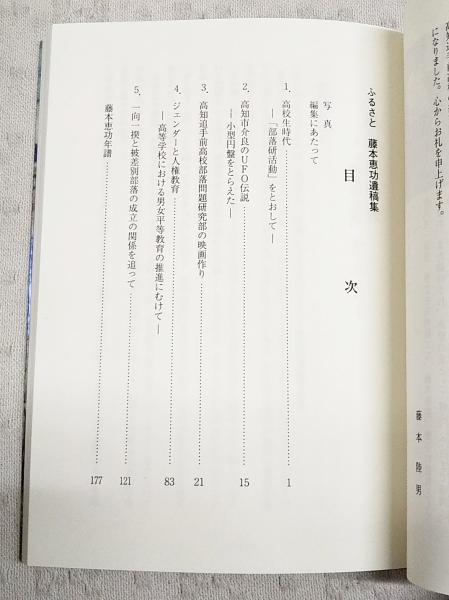 になりました。心からお礼を申上げます。
藤本陸男
ふるさと 藤本恵功遺稿集
目次
写真
編集にあたって
1. 高校生時代 1
―「部落研活動」をとおして―
2. 高知市介良のUFO伝説 15
―小型円盤をとらえた―
3. 高知追手前高校部落問題研究部の映画作り 21
4. ジェンダーと人権教育 83
―高等学校における男女平等教育の推進にむけて―
5. 一向一揆と被差別部落の成立の関係を追って 121
藤本恵功年譜 177